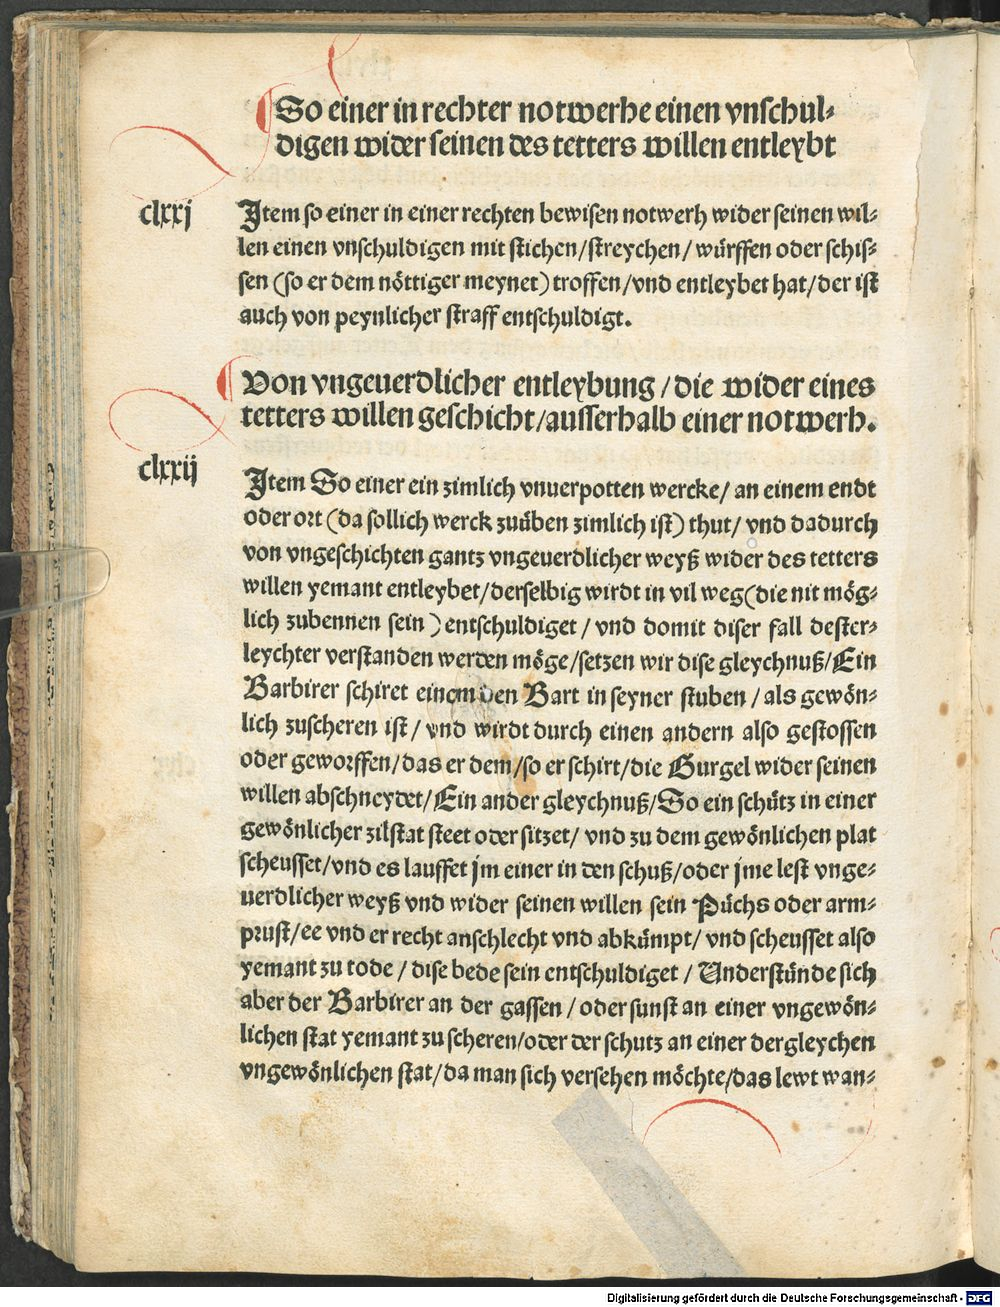 So einer in rechter notwerhe einen vnschul-
digen wider seinen des tetters willen entleybt
clxxj
Item so einer in einer rechten bewisen notwerh wider seinen wil-
len einen vnschuldigen mit stichen/streychen/würffen oder schis-
sen (so er dem nöttiger meynet) troffen/vnd entleybet hat/der ist
auch von peynlicher straff entschuldigt.
Von vngeuerdlicher entleybung/die wider eines
tetters willen geschicht/ausserhalb einer notwerh.
clxxij
Item So einer ein zimlich vnuerpotten wercke/an einem endt
oder ort (da sollich werck zuüben zimlich ist) thut/vnd dadurch
von vngeschichten gantz vngeuerdlicher weyß wider des tetters
willen yemant entleybet/derselbig wirdt in vil weg(die nit mög-
lich zubennen sein) entschuldiget/vnd domit diser fall dester-
leychter verstanden werden möge/setzen wir dise gleychnuß/Ein
Barbirer schiret einem den Bart in seyner stuben/als gewön-
lich zuscheren ist/vnd wirdt durch einen andern also gestossen
oder geworffen/das er dem/so er schirt/die Gurgel wider seinen
willen abschneydet/Ein ander gleychnuß/So ein schütz in einer
gewönlicher zilstat steet oder sitzet/vnd zu dem gewönlichen plat
scheusset/vnd es lauffet jm einer in den schuß/oder jme lest vnge-
uerdlicher weyß vnd wider seinen willen sein Püchs oder arm-
prust/ee vnd er recht anschlecht vnd abkümpt/vnd scheusset also
yemant zu tode/dise bede sein entschuldiget/Understünde sich
aber der Barbirer an der gassen/oder sunst an einer vngewön-
lichen stat yemant zu scheren/oder der schutz an einer dergleychen
vngewönlichen stat/da man sich versehen möchte/das lewt wan-
Digitalisierung gefördert durch die Deutsche Forschungsgemeinschaft - DFG